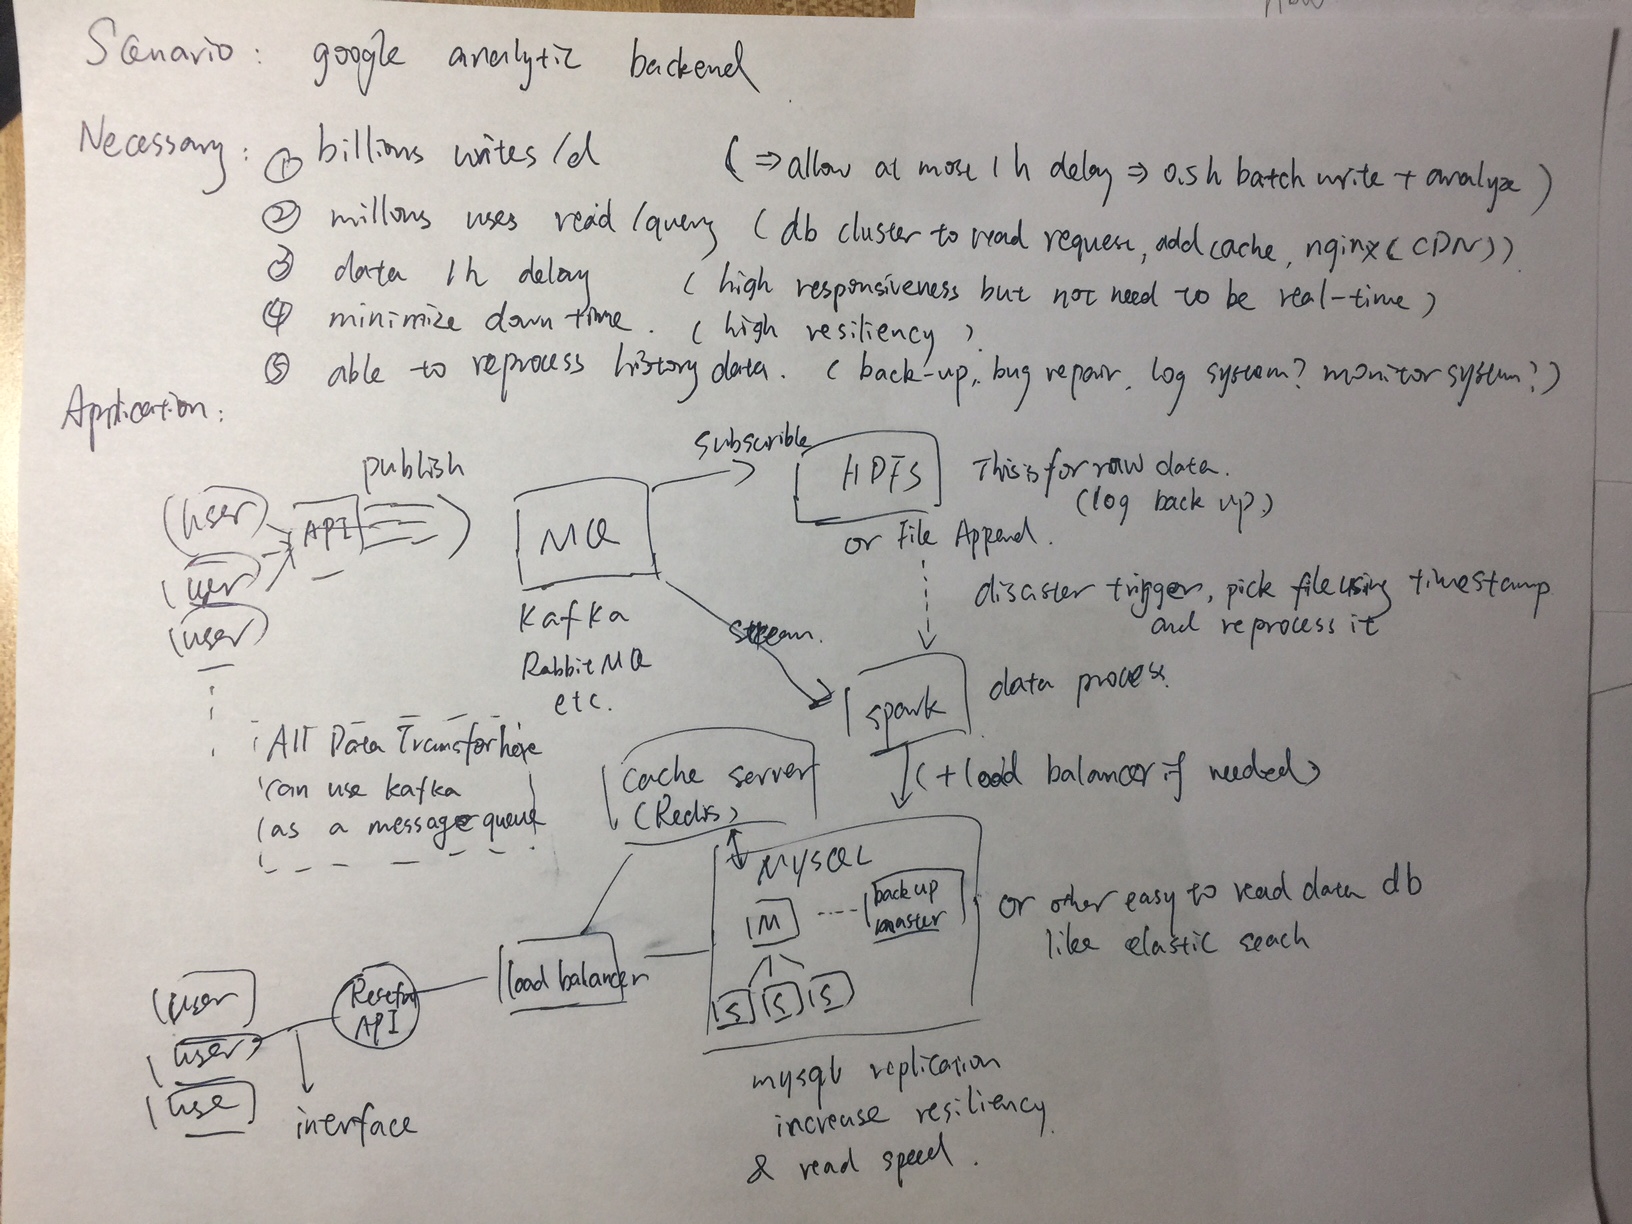 now
Scenario: google analytic backend
Necessary: ① billions writes/d (⇒ allow at most 1h delay ⇒ 0.5h batch write + analyze)
② millons uses read/query (db cluster to read request, add cache, nginx (CDN))
③ data 1h delay (high responsiveness but not need to be real-time)
④ minimize down time. (high resiliency)
⑤ able to reprocess history data. (back-up, bug repair, log system? monitor system?)
Application:
user
user
user
API
publish
MQ
Kafka
Rabbit MQ
etc.
subscrible
HDFS
or File Append.
This is for raw data.
(log back up)
disaster trigger, pick file using timestamp
and reprocess it
stream.
spark
data process.
(+ load balancer if needed)
All Data Transfer here
can use kafka
as a message queue
cache server
(Redis)
MYSQL
M
back up
master
S S S
or other easy to read data db
like elastic seach
mysql replication
increase resiliency
& read speed.
load balancer
Restful
API
user
user
use
interface